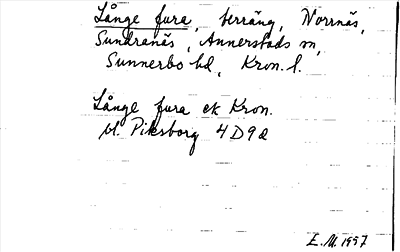 Långe fura, terräng, Norrnäs,
Sundranäs, Annerstads sn,
Sunnerbo hd, Kron. l.
Långe fura ek Kron.
bl. Piksborg 4D9d
E.M. 1957